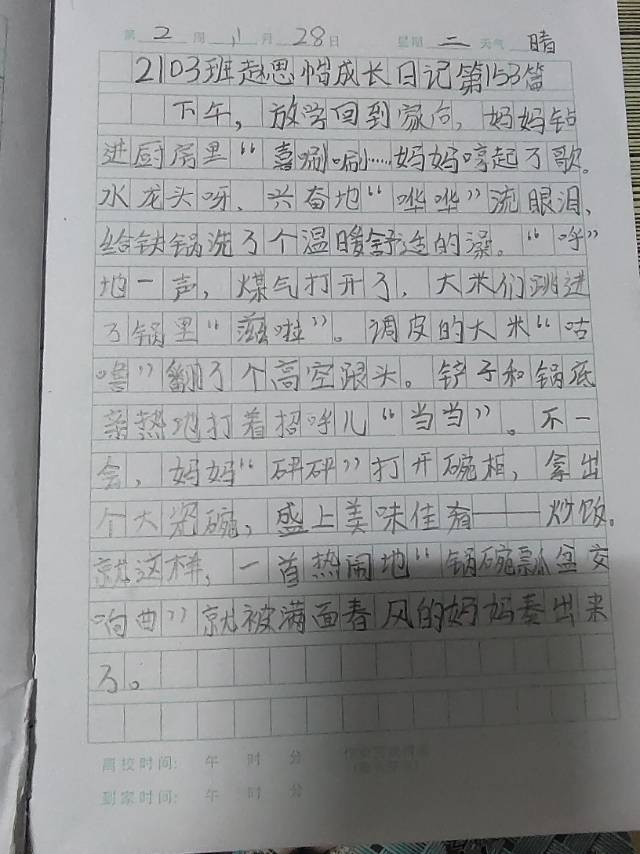 第 2 周 11 月 28 日 星期 二 天气 晴
2103班赵思惜成长日记第153篇
下午，放学回到家后，妈妈钻
进厨房里“喜唰唰……妈妈哼起了歌。
水龙头呀、兴奋地“哗哗”流眼泪、
给铁锅洗了个温暖舒适的澡。“呼”
地一声，煤气打开了，大米们跳进
了锅里“滋啦”。调皮的大米“咕
噜”翻了个高空跟头。铲子和锅底
亲热地打着招呼儿“当当”。不一
会，妈妈“砰砰”打开碗柜，拿出
个大瓷碗，盛上美味佳肴——炒饭。
就这样，一首热闹地“锅碗瓢盆交
响曲”就被满面春风的妈妈奏出来
了。
离校时间： 午 时 分
到家时间： 午 时 分